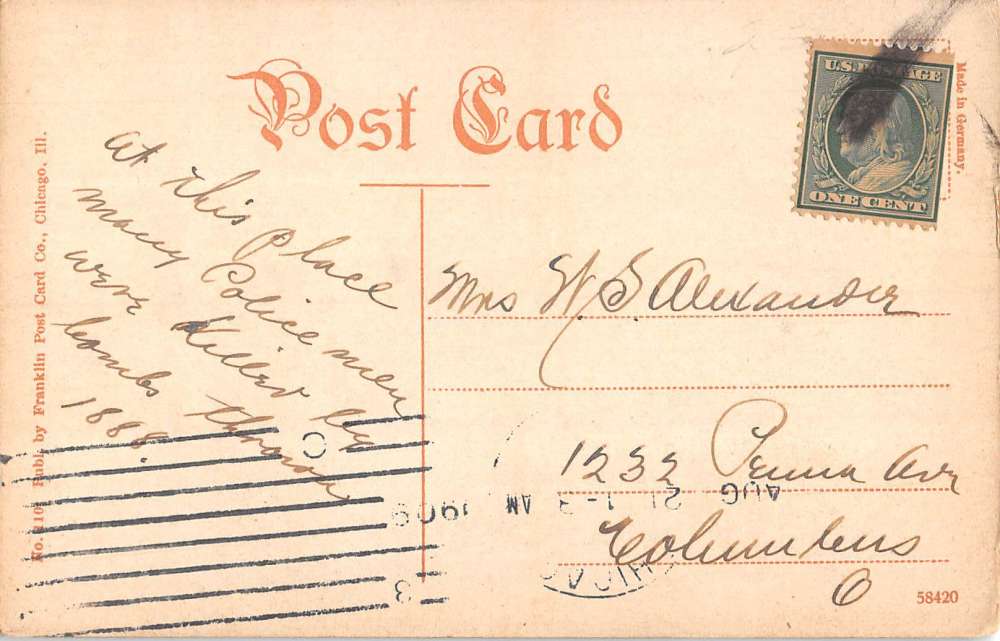 Post Card
Made in Germany.
U.S. POSTAGE
ONE CENT
at this place
many Police men
were Killed by
bombs thrown
1888.
Mrs W. S. Alexander
1232 Penna Ave
Columbus
O
AUG 21 1-3 AM 1909
C
3
58420
Publ. by Franklin Post Card Co., Chicago, Ill.